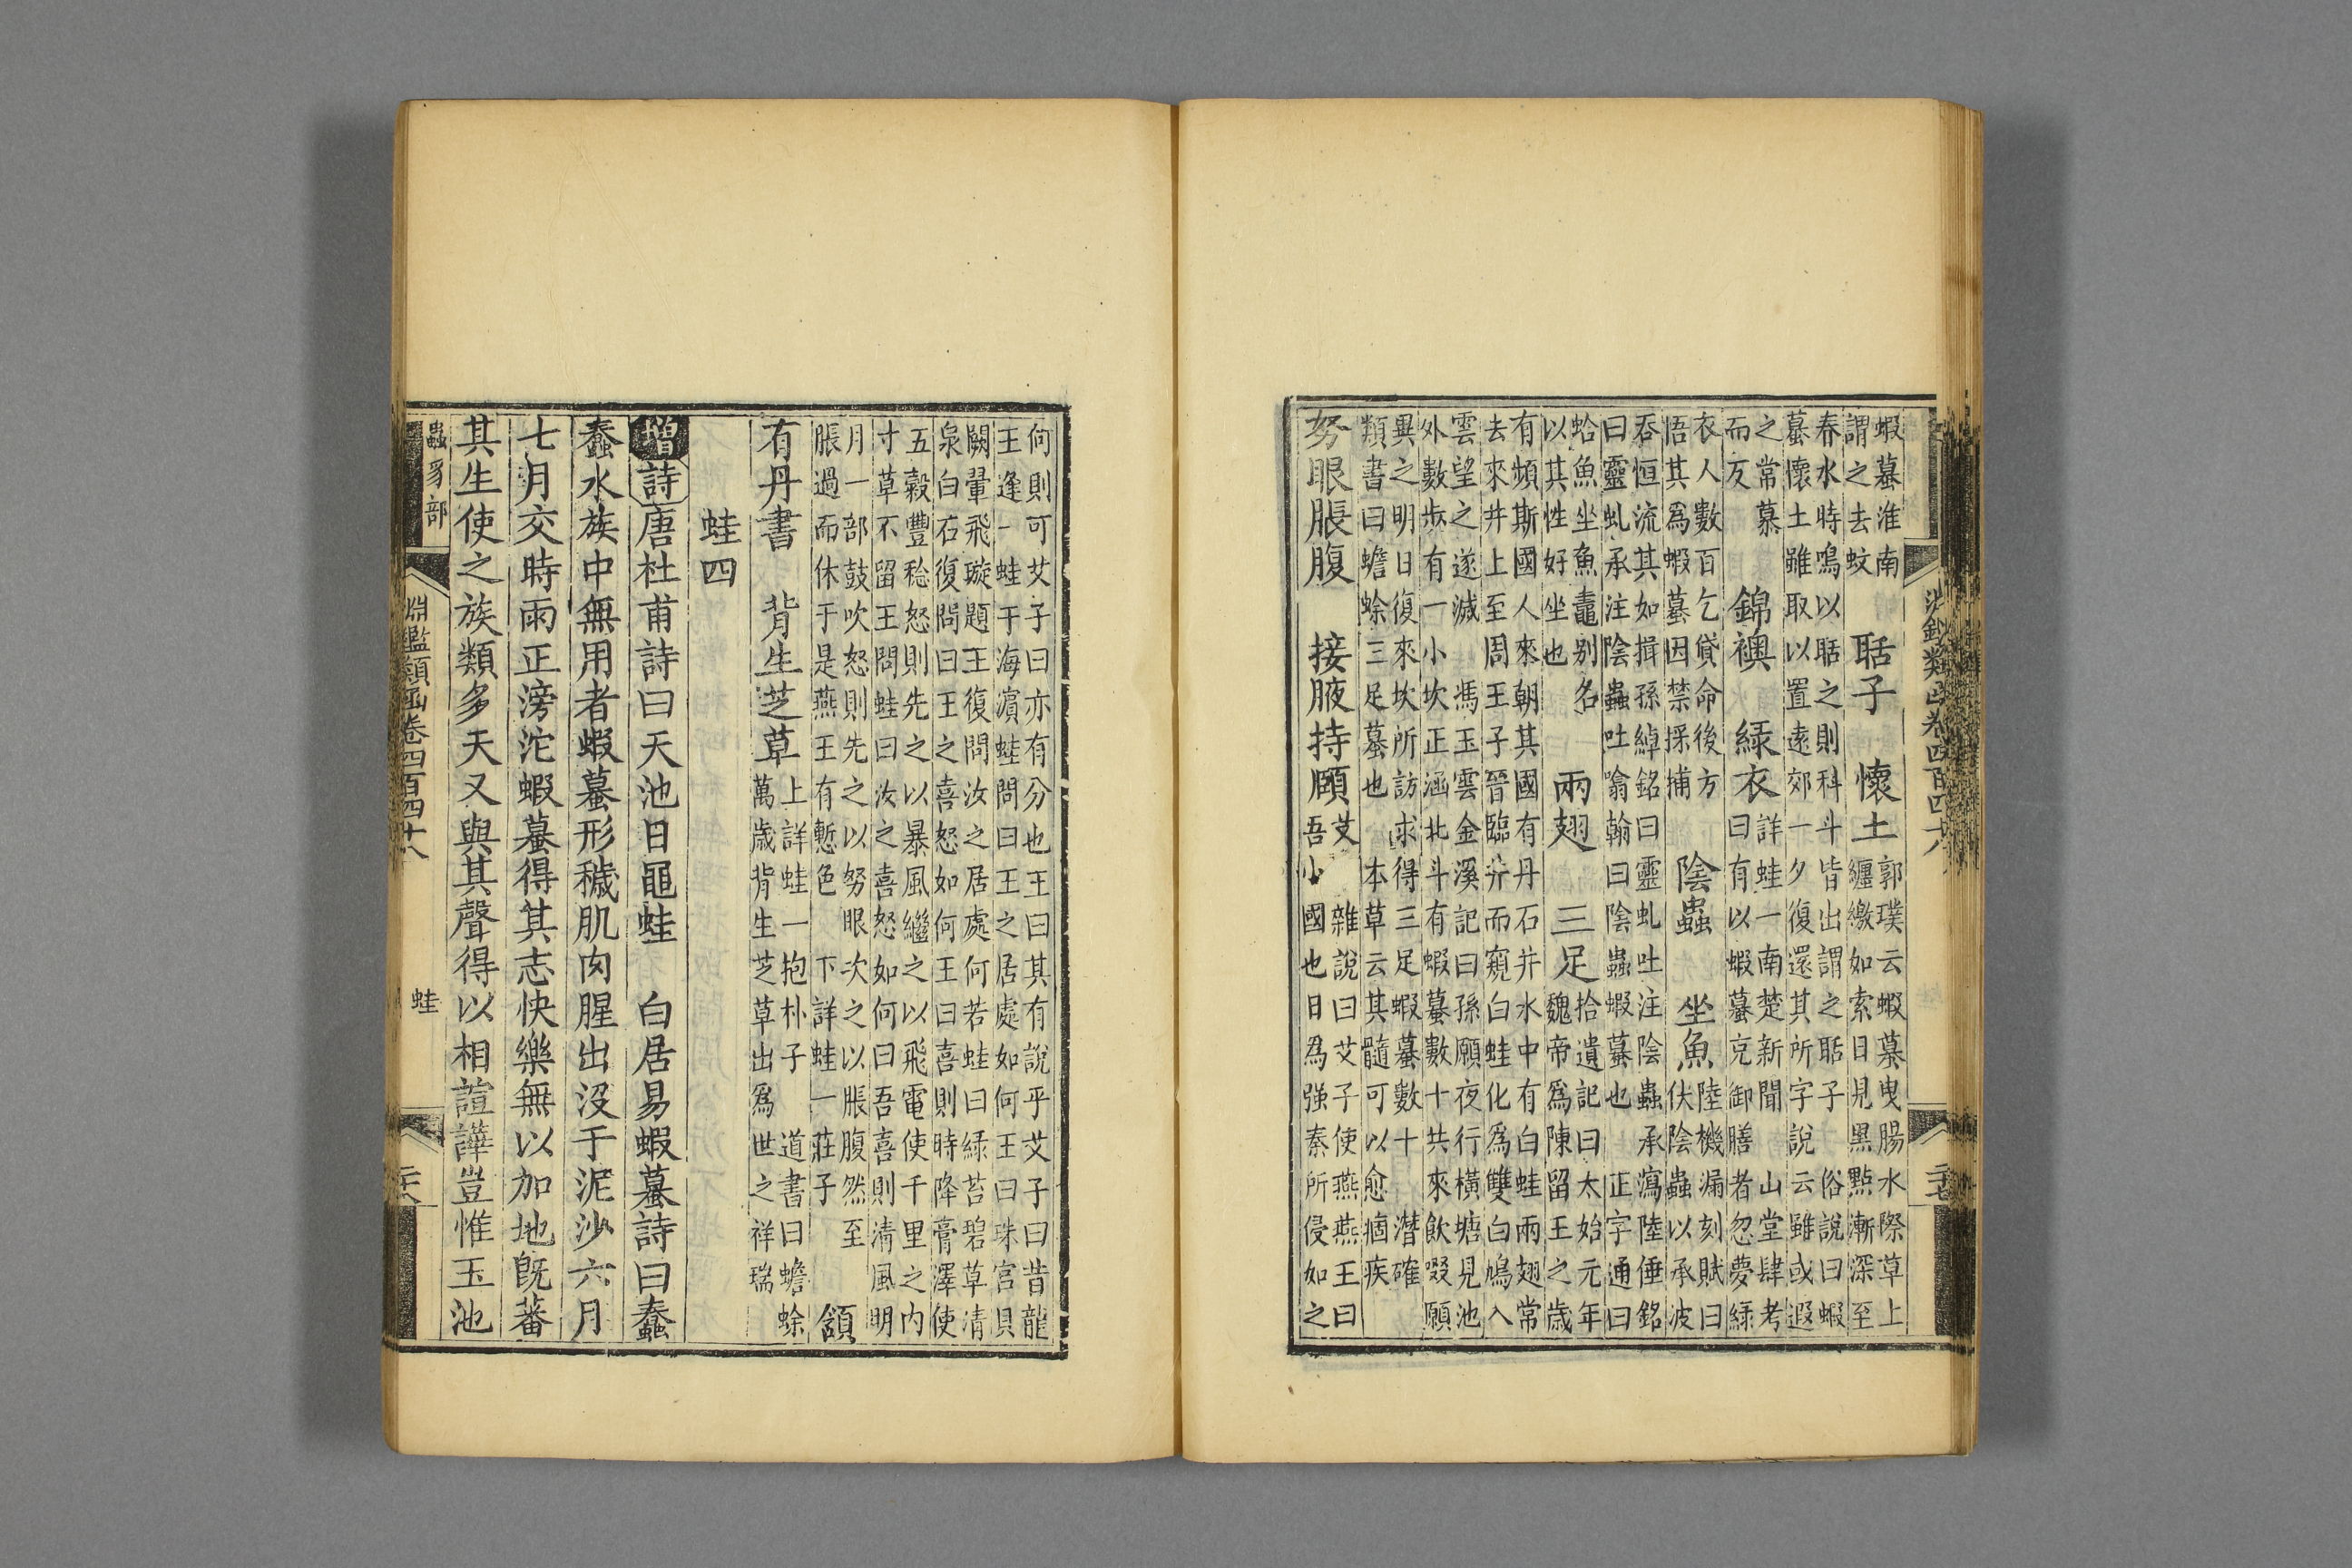 蝦蟇淮南
謂之去蚊
聒子 懷土
郭璞云蝦蟇曳腸水際草上
纒繳如索日見黑點漸深至
春水時鳴以聒之則科斗皆出謂之聒子 俗說曰蝦
蟇懷土雖取以置遠郊一夕復還其所字說云雖或遐
之常慕
而反
錦襖 綠衣
詳蛙一南楚新聞 山堂肆考
曰有以蝦蟇充御膳者忽夢綠
衣人數百乞貸命後方
悟其爲蝦蟇因禁採捕
陰蟲 坐魚
陸機漏刻賦曰
伏陰蟲以承波
吞恒流其如揖孫綽銘曰靈虬吐注陰蟲承瀉陸倕銘
曰靈虬承注陰蟲吐噏翰曰陰蟲蝦蟇也 正字通曰
蛤魚坐魚鼃别名
以其性好坐也
兩翅 三足
拾遺記曰太始元年
魏帝爲陳留王之歲
有頻斯國人來朝其國有丹石井水中有白蛙兩翅常
去來井上至周王子晉臨井而窺白蛙化爲雙白鳩入
雲望之遂滅 馮玉雲金溪記曰孫願夜行橫塘見池
外數步有一小坎正涵北斗有蝦蟇數十共來飲啜願
異之明日復來坎所訪求得三足蝦蟇數十 潛確
類書曰蟾蜍三足蟇也 本草云其髓可以愈痼疾
努眼脹腹 接腋持頤
艾雜說曰艾子使燕燕王曰
吾小國也日爲强秦所侵如之
何則可艾子曰亦有分也王曰其有說乎艾子曰昔龍
王逢一蛙于海濱蛙問曰王之居處如何王曰珠宮貝
闕翬飛璇題王復問汝之居處何若蛙曰綠苔碧草清
泉白石復問曰王之喜怒如何王曰喜則時降膏澤使
五穀豐稔怒則先之以暴風繼之以飛電使千里之内
寸草不留王問蛙曰汝之喜怒如何曰吾喜則清風明
月一部鼓吹怒則先之以努眼次之以脹腹然至
脹過而休于是燕王有慙色 下詳蛙一莊子
頷
有丹書 背生芝草
上詳蛙一抱朴子 道書曰蟾蜍
萬歲背生芝草出爲世之祥瑞
蛙四
增詩唐杜甫詩曰天池日黽蛙 白居易蝦蟇詩曰蠢
蠢水族中無用者蝦蟇形穢肌肉腥出没于泥沙六月
七月交時雨正滂沱蝦蟇得其志快樂無以加地既蕃
其生使之族類多天又與其聲得以相諠譁豈惟玉池
蟲豸部
淵鑑類函卷四百四十八
蛙
二十八